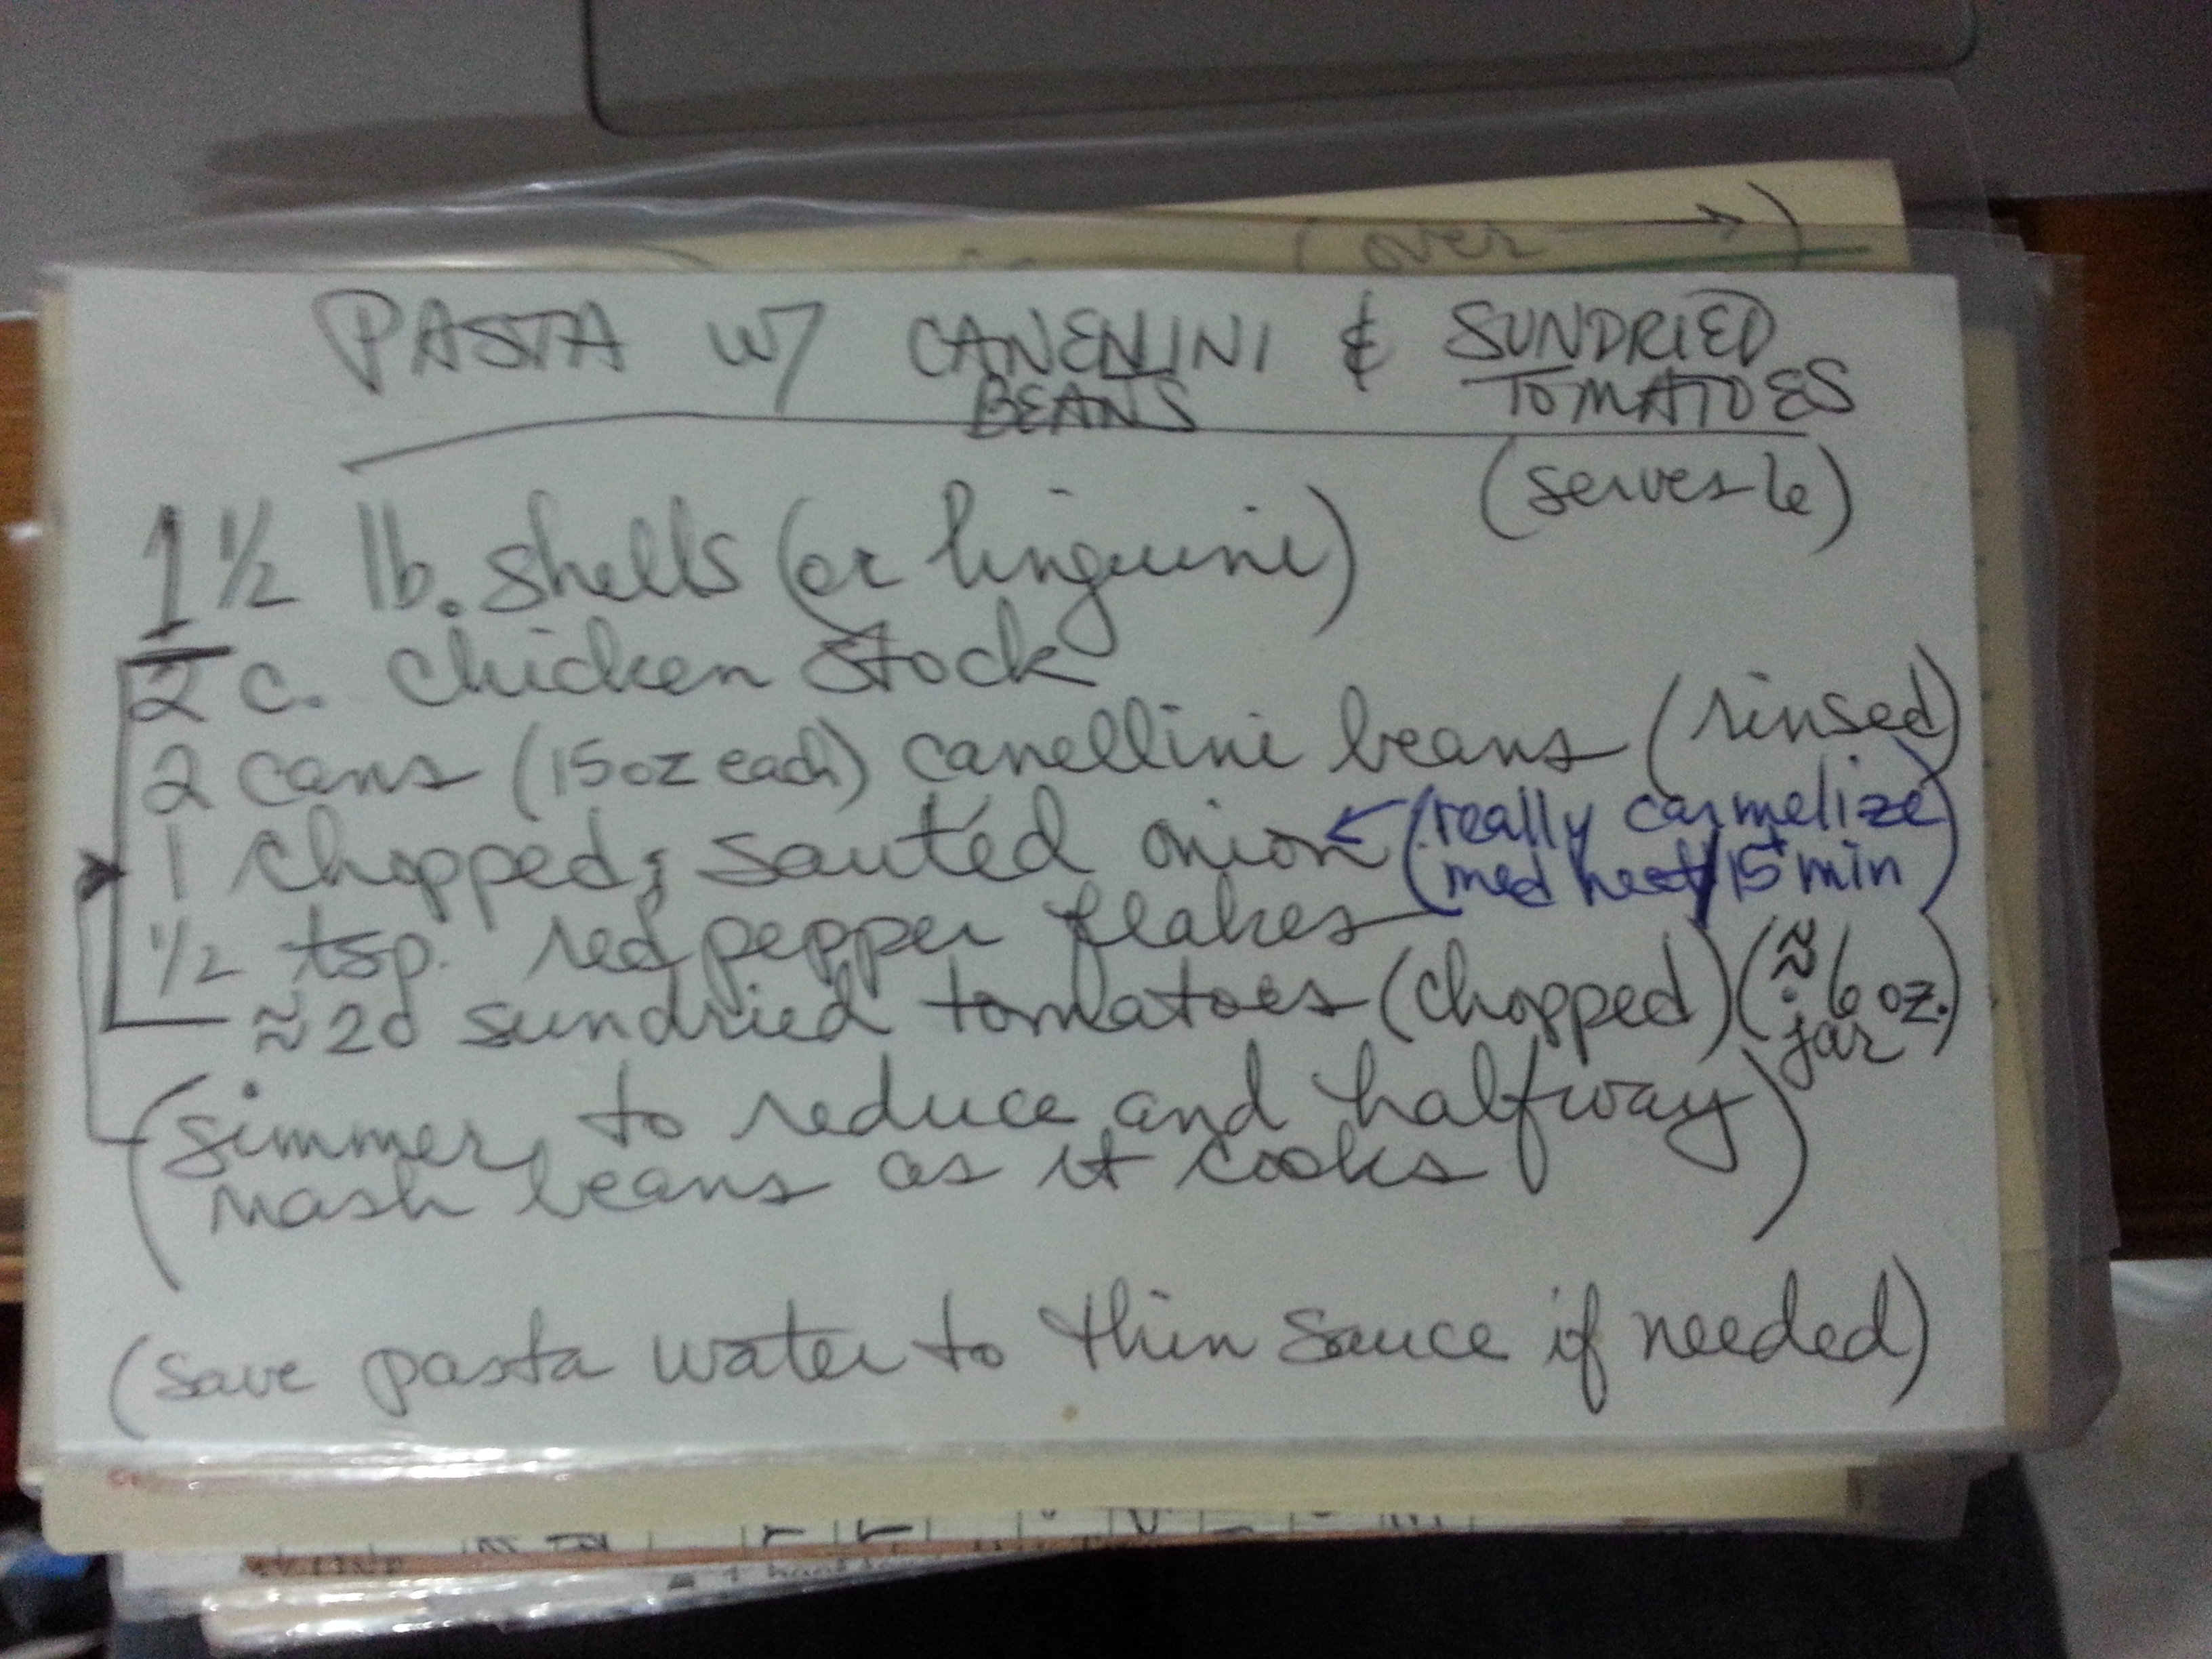 (over →)
PASTA W/ CANENLINI & SUNDRIED
BEANS TOMATOES
(serves 6)
1 1/2 lb. shells (or linguini)
2 c. chicken stock
2 cans (15 oz each) canellini beans (rinsed)
1 chopped, sautéd onion ← (really carmelize
med heat/15+ min
1/2 tsp. red pepper flakes
≈ 20 sundried tomatoes (chopped) (≈ 6 oz.
jar)
(simmer, to reduce and halfway
mash beans as it cooks)
(save pasta water to thin sauce if needed)